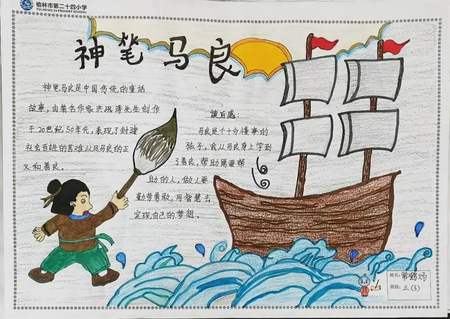 榆林市第二十四小学
神笔马良
神笔马良是中国传统的童话
故事,由著名作家洪汛涛先生创作
于20世纪50年代,表现了封建
社会百姓的苦难以及马良的正
义和善良。
读后感:
马良是个十分懂事的
孩子,我从马良身上学到
了善良,帮助需要帮
助的人,做人要
勤劳勇敢,用智慧去
实现自己的梦想。
姓名:
班级:三(3)